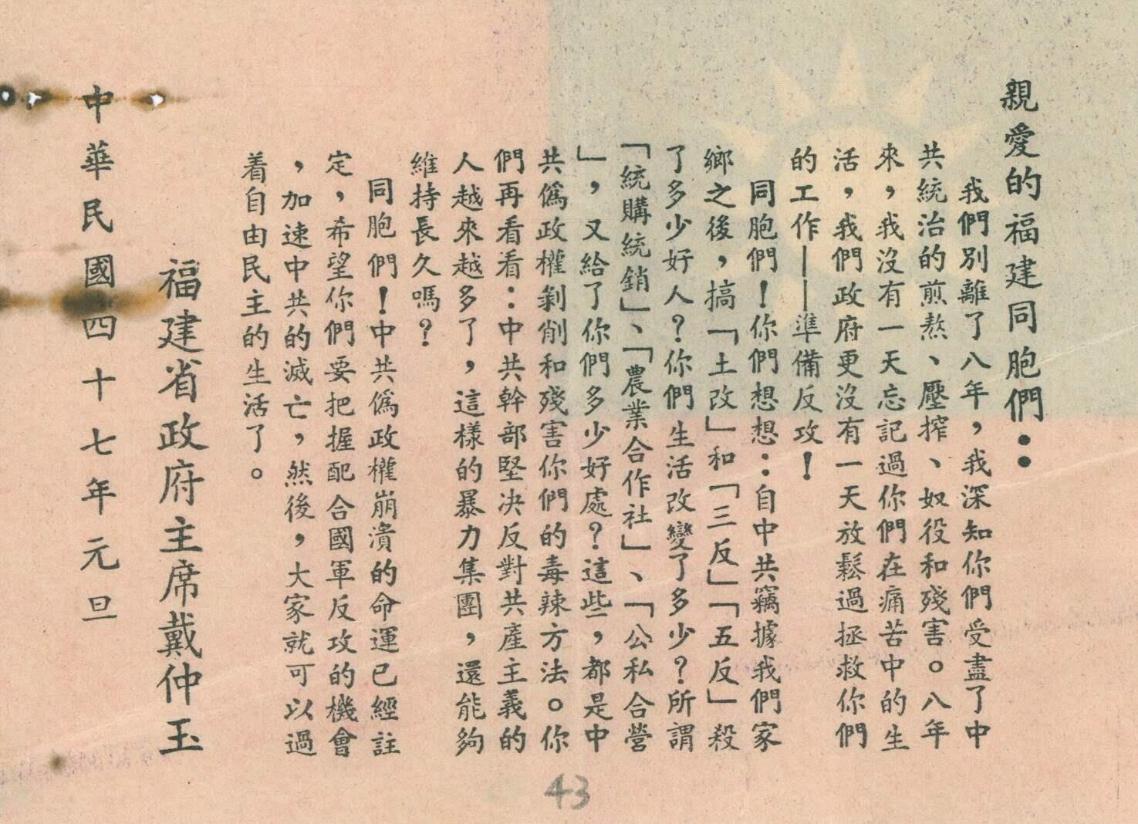 親愛的福建同胞們：
我們別離了八年，我深知你們受盡了中
共統治的煎熬、壓搾、奴役和殘害。八年
來，我沒有一天忘記過你們在痛苦中的生
活，我們政府更沒有一天放鬆過拯救你們
的工作——準備反攻！
同胞們！你們想想：自中共竊據我們家
鄉之後，搞「土改」和「三反」「五反」殺
了多少好人？你們生活改變了多少？所謂
「統購統銷」、「農業合作社」、「公私合營
」，又給了你們多少好處？這些，都是中
共僞政權剝削和殘害你們的毒辣方法。你
們再看看：中共幹部堅决反對共產主義的
人越來越多了，這樣的暴力集團，還能夠
維持長久嗎？
同胞們！中共僞政權崩潰的命運已經註
定，希望你們要把握配合國軍反攻的機會
，加速中共的滅亡，然後，大家就可以過
着自由民主的生活了。
福建省政府主席戴仲玉
中華民國四十七年元旦
43